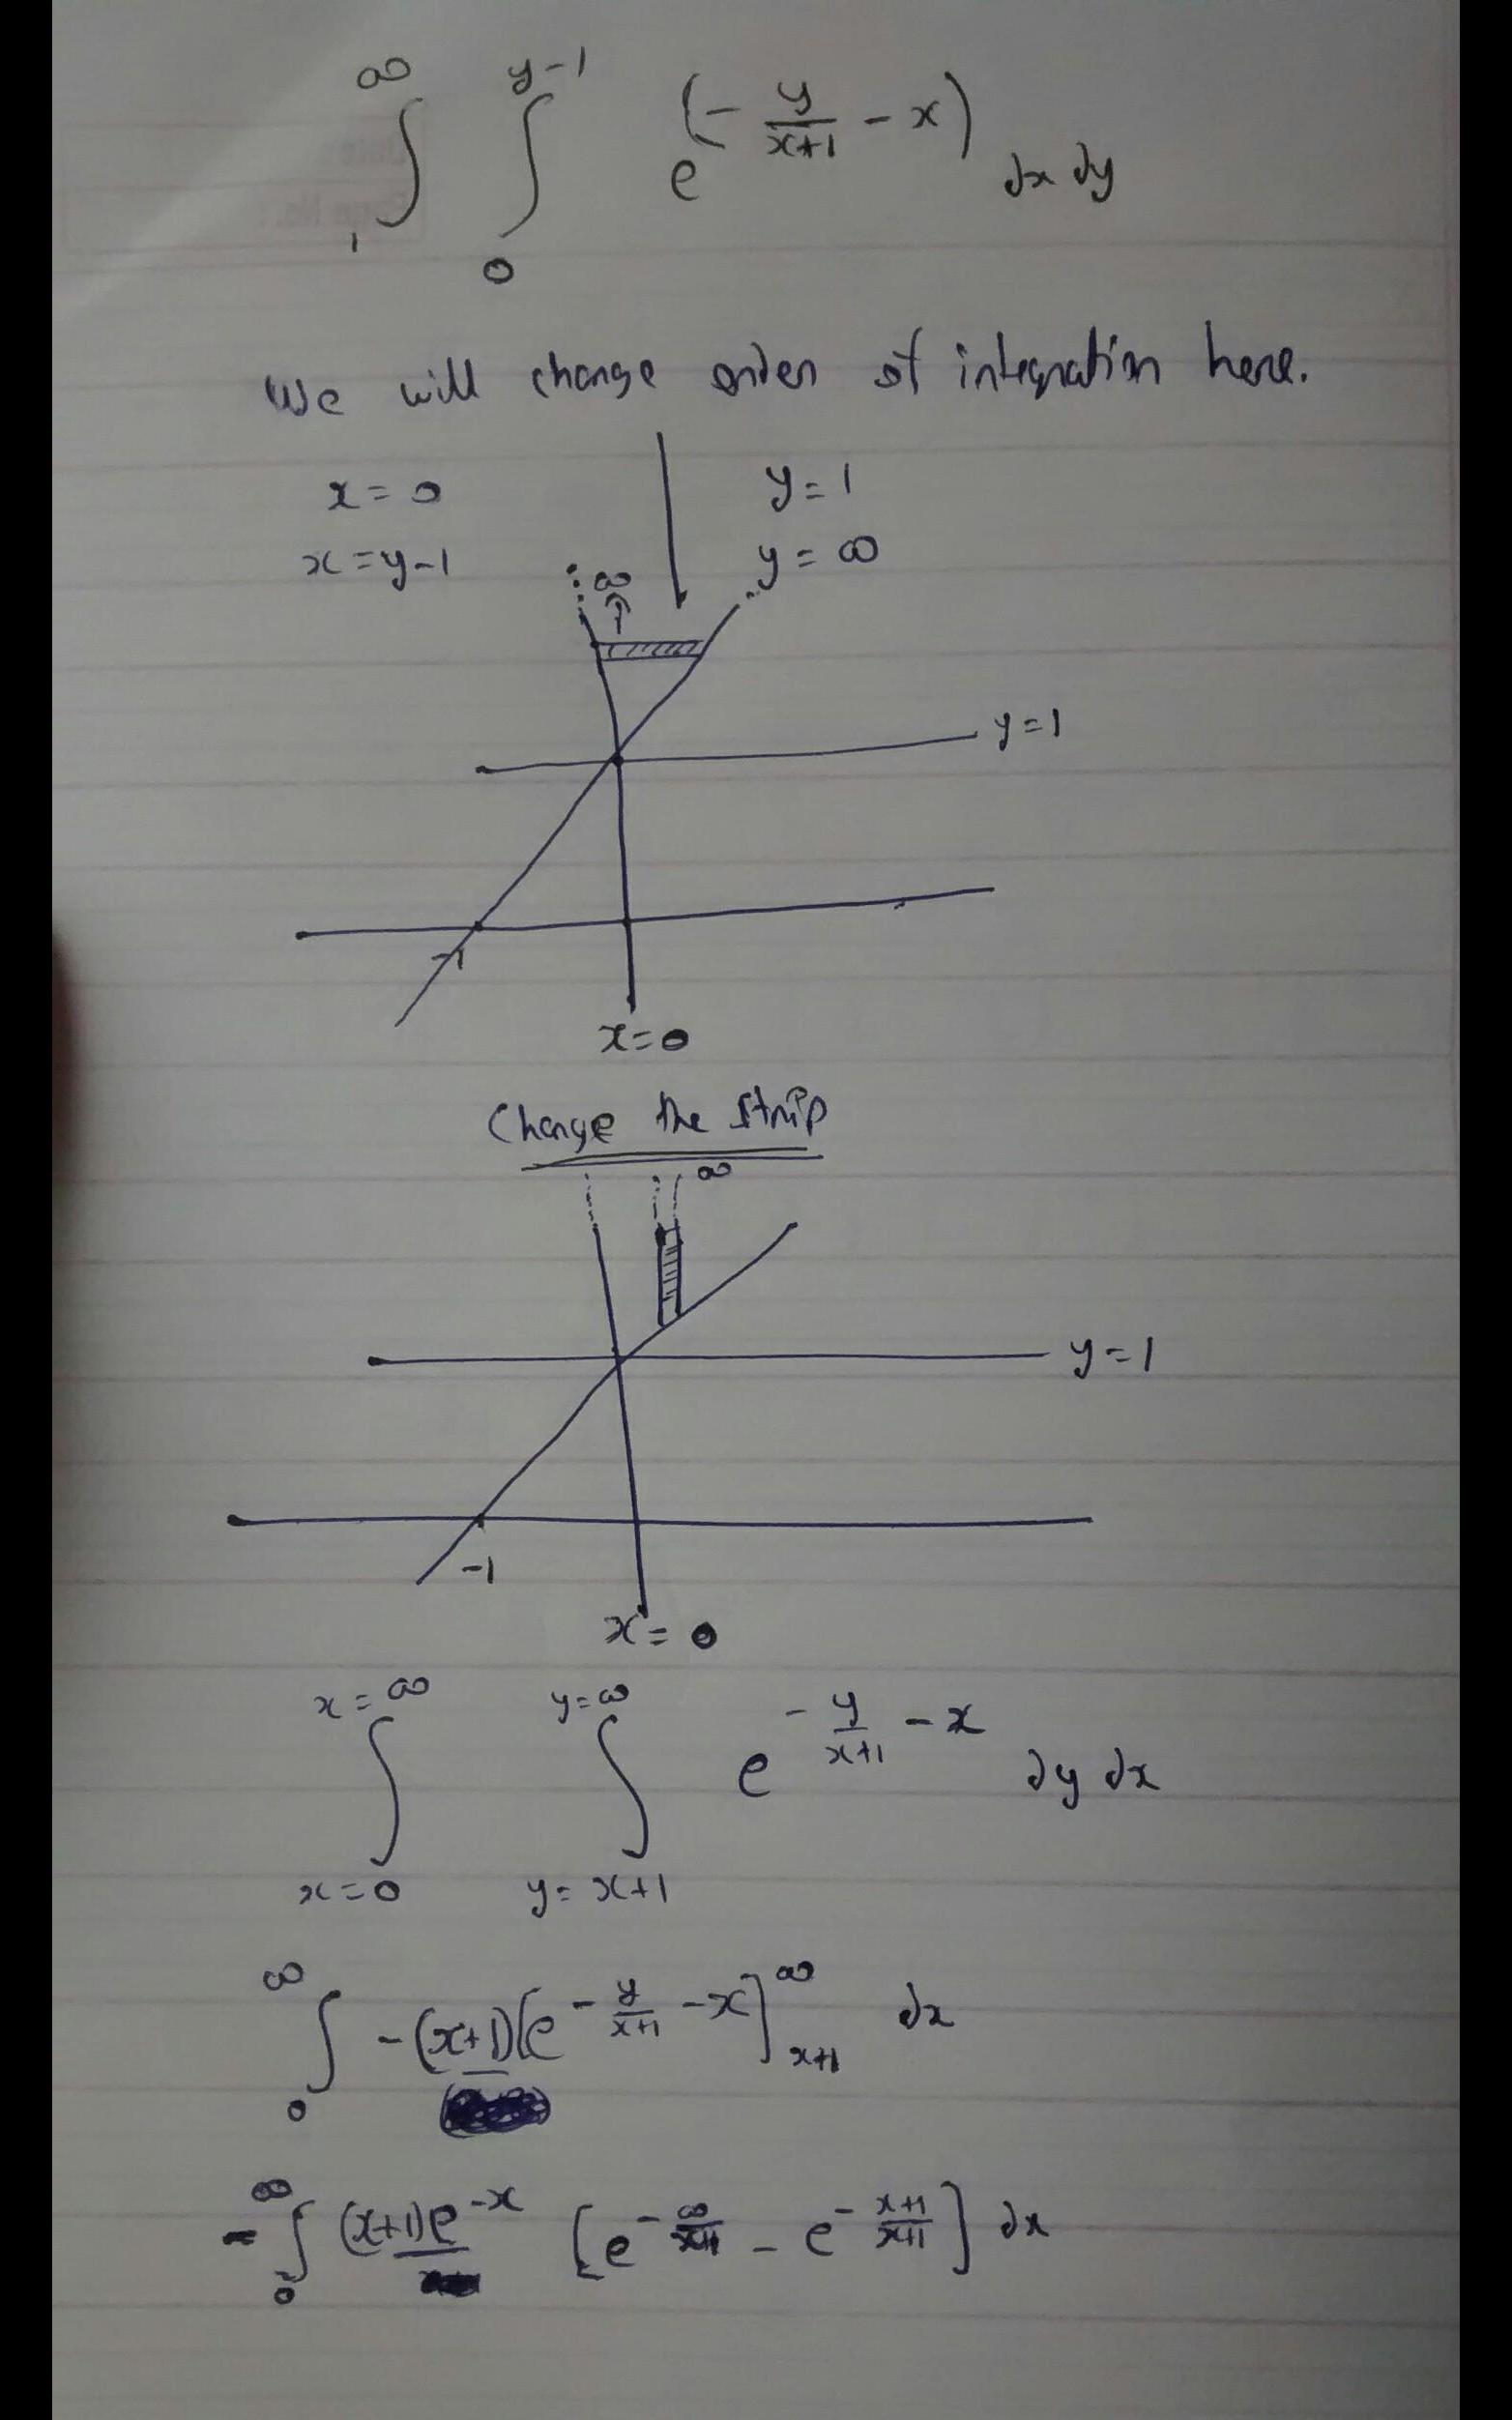 ∫₁^∞ ∫₀^(y-1) e^(-y/(x+1) - x) dx dy
We will change order of integration here.
x = 0 y = 1
x = y-1 y = ∞
∞
y = 1
-1
x = 0
Change the strip
∞
y = 1
-1
x = 0
∫_(x=0)^(x=∞) ∫_(y=x+1)^(y=∞) e^(-y/(x+1) - x) dy dx
∫₀^∞ -(x+1)[e^(-y/(x+1) - x)]_(x+1)^∞ dx
-∫₀^∞ (x+1)e^(-x) [e^(-∞/(x+1)) - e^(-(x+1)/(x+1))] dx